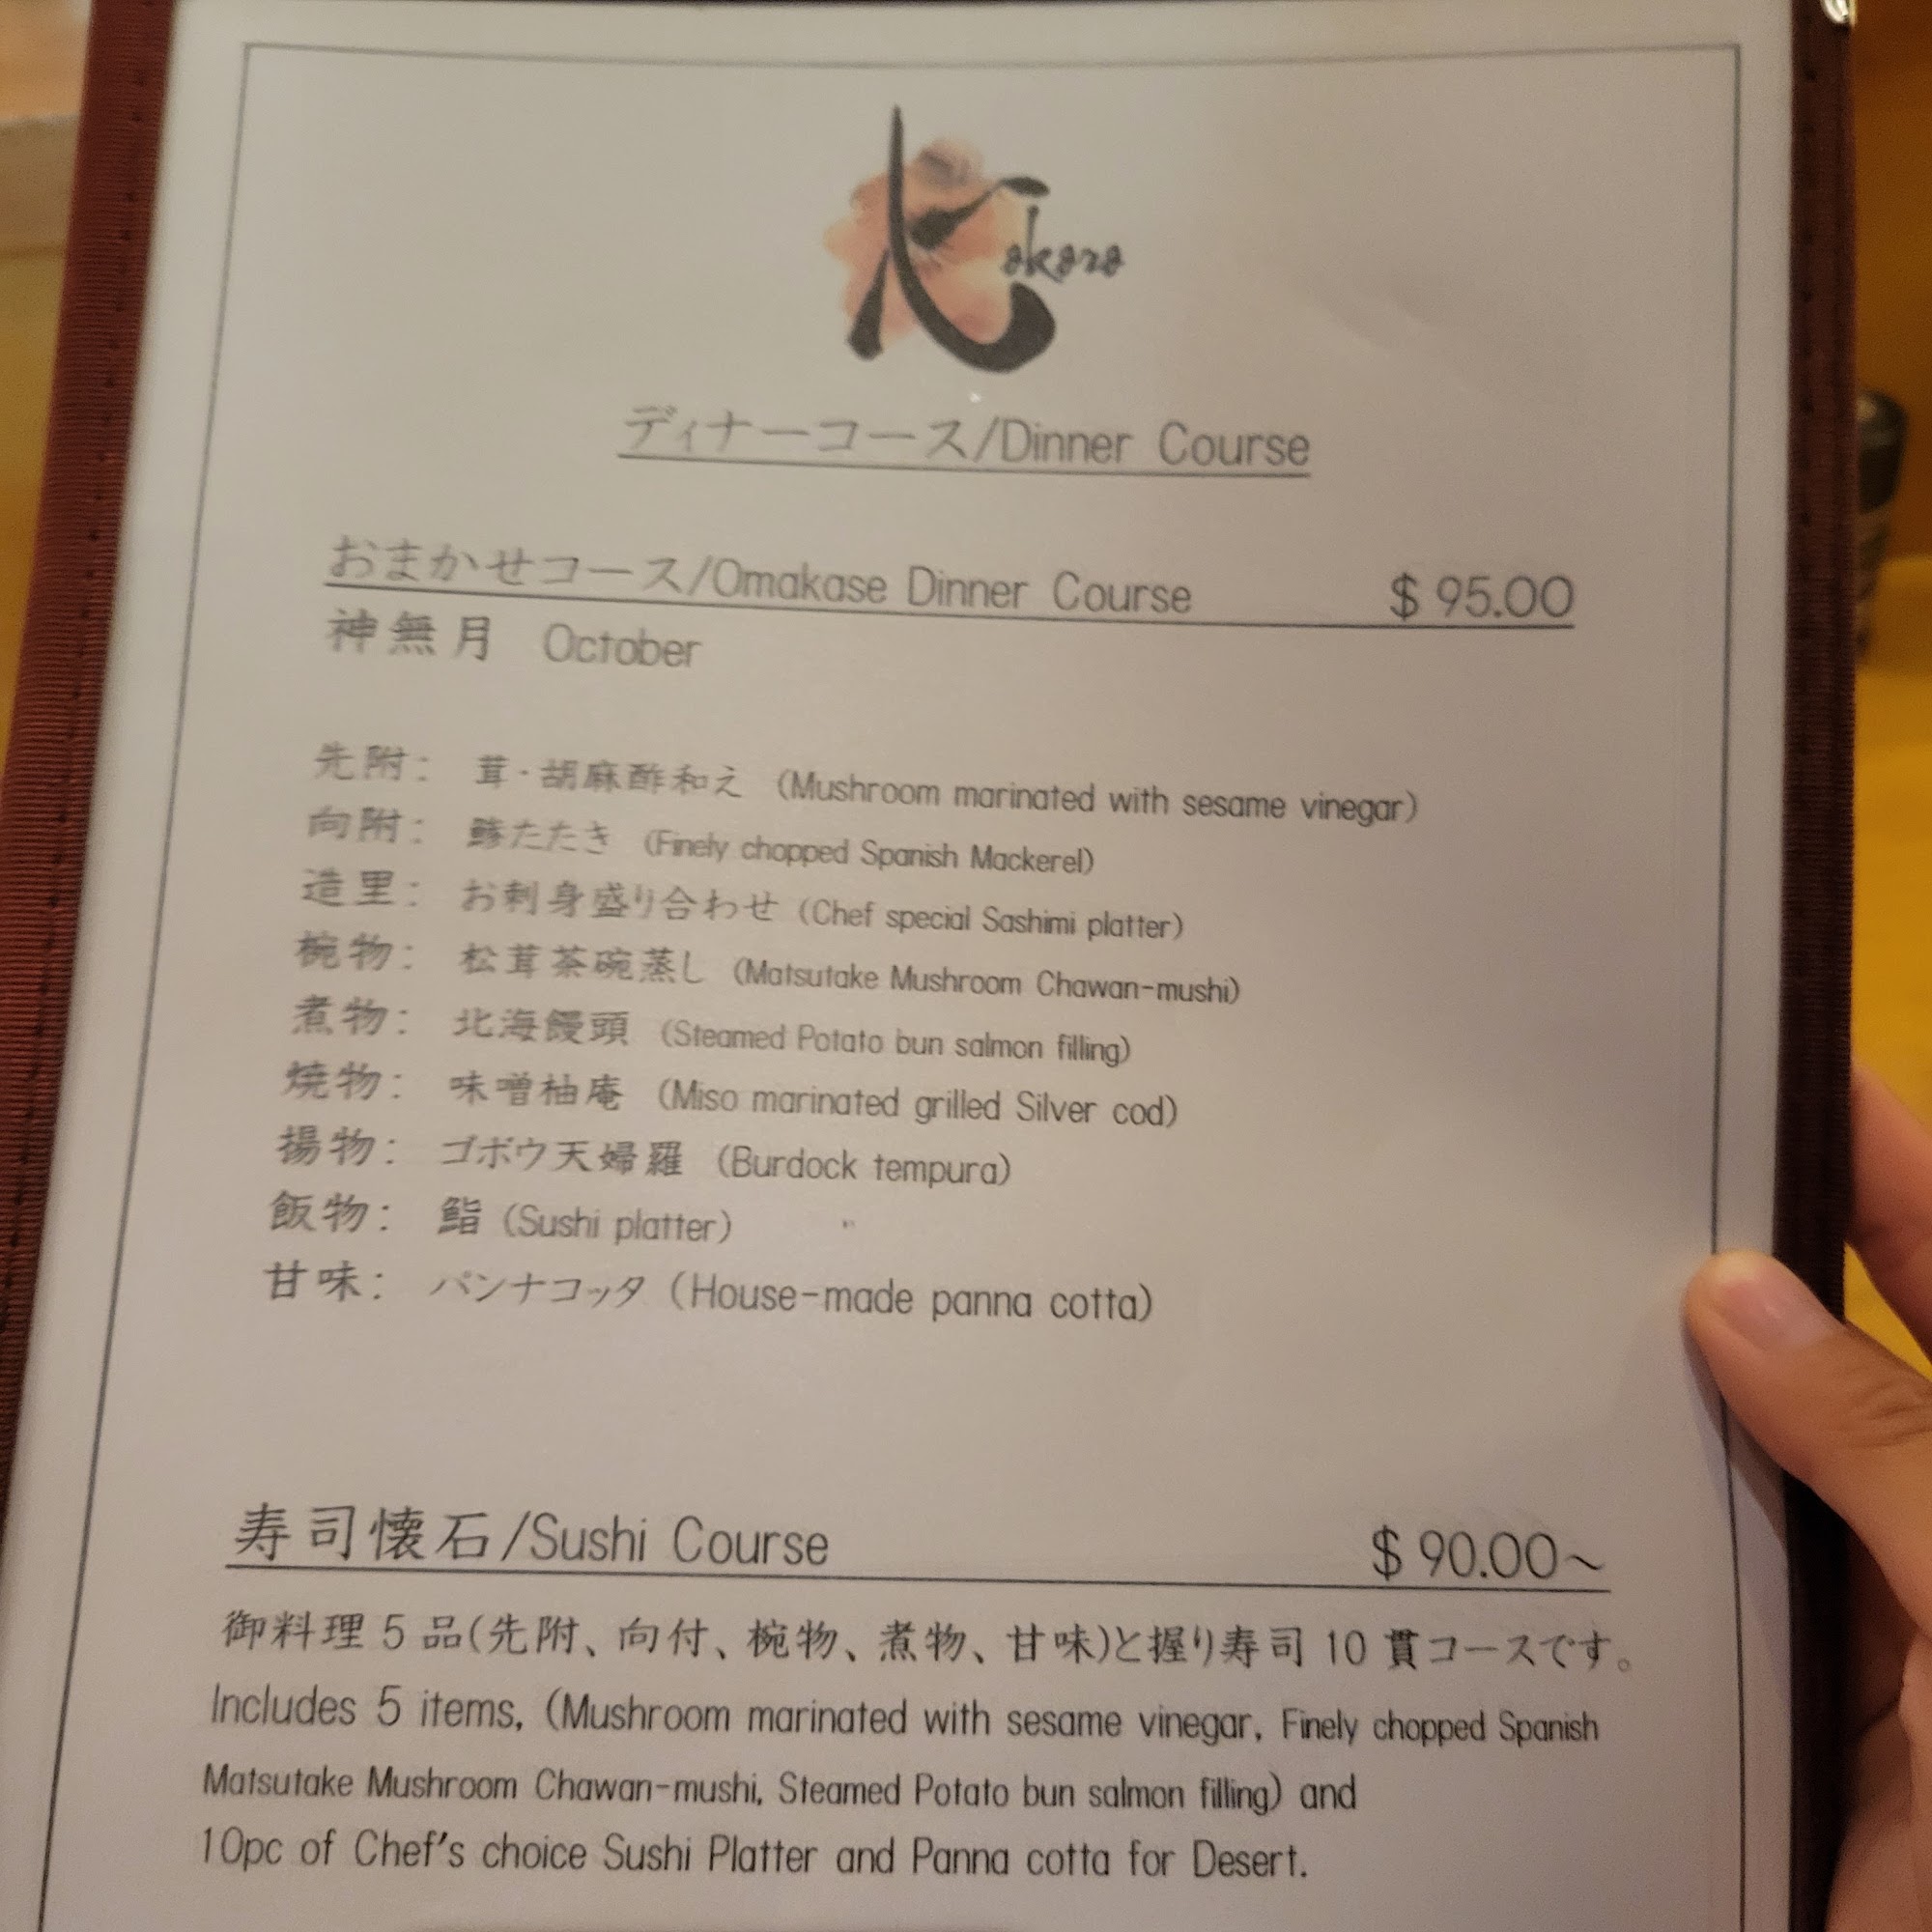 Kokoro
ディナーコース/Dinner Course
おまかせコース/Omakase Dinner Course $95.00
神無月 October
先附: 茸・胡麻酢和え (Mushroom marinated with sesame vinegar)
向附: 鯵たたき (Finely chopped Spanish Mackerel)
造里: お刺身盛り合わせ (Chef special Sashimi platter)
椀物: 松茸茶碗蒸し (Matsutake Mushroom Chawan-mushi)
煮物: 北海饅頭 (Steamed Potato bun salmon filling)
焼物: 味噌柚庵 (Miso marinated grilled Silver cod)
揚物: ゴボウ天婦羅 (Burdock tempura)
飯物: 鮨 (Sushi platter)
甘味: パンナコッタ (House-made panna cotta)
寿司懐石/Sushi Course $90.00~
御料理5品(先附、向付、椀物、煮物、甘味)と握り寿司10貫コースです。
Includes 5 items, (Mushroom marinated with sesame vinegar, Finely chopped Spanish
Matsutake Mushroom Chawan-mushi, Steamed Potato bun salmon filling) and
10pc of Chef's choice Sushi Platter and Panna cotta for Desert.